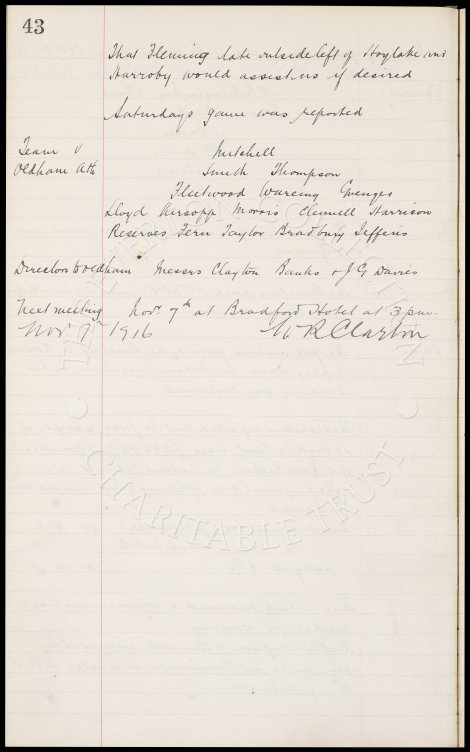 43
That Fleming late outside left of Hoylake and
Harroby would assist us if desired
Saturdays game was reported
Team v Mitchell
Oldham Ath Smith Thompson
Fleetwood Wareing Grenyer
Lloyd Kirsopp Morris Clennell Harrison
Reserves Fern Taylor Bradbury Jefferis
Directors to Oldham Messrs Clayton Banks & J G Davies
Next meeting Nov. 7th at Bradford Hotel at 3 pm.
Nov. 7th 1916 W R Clayton
THE EVERTON COLLECTION
CHARITABLE TRUST